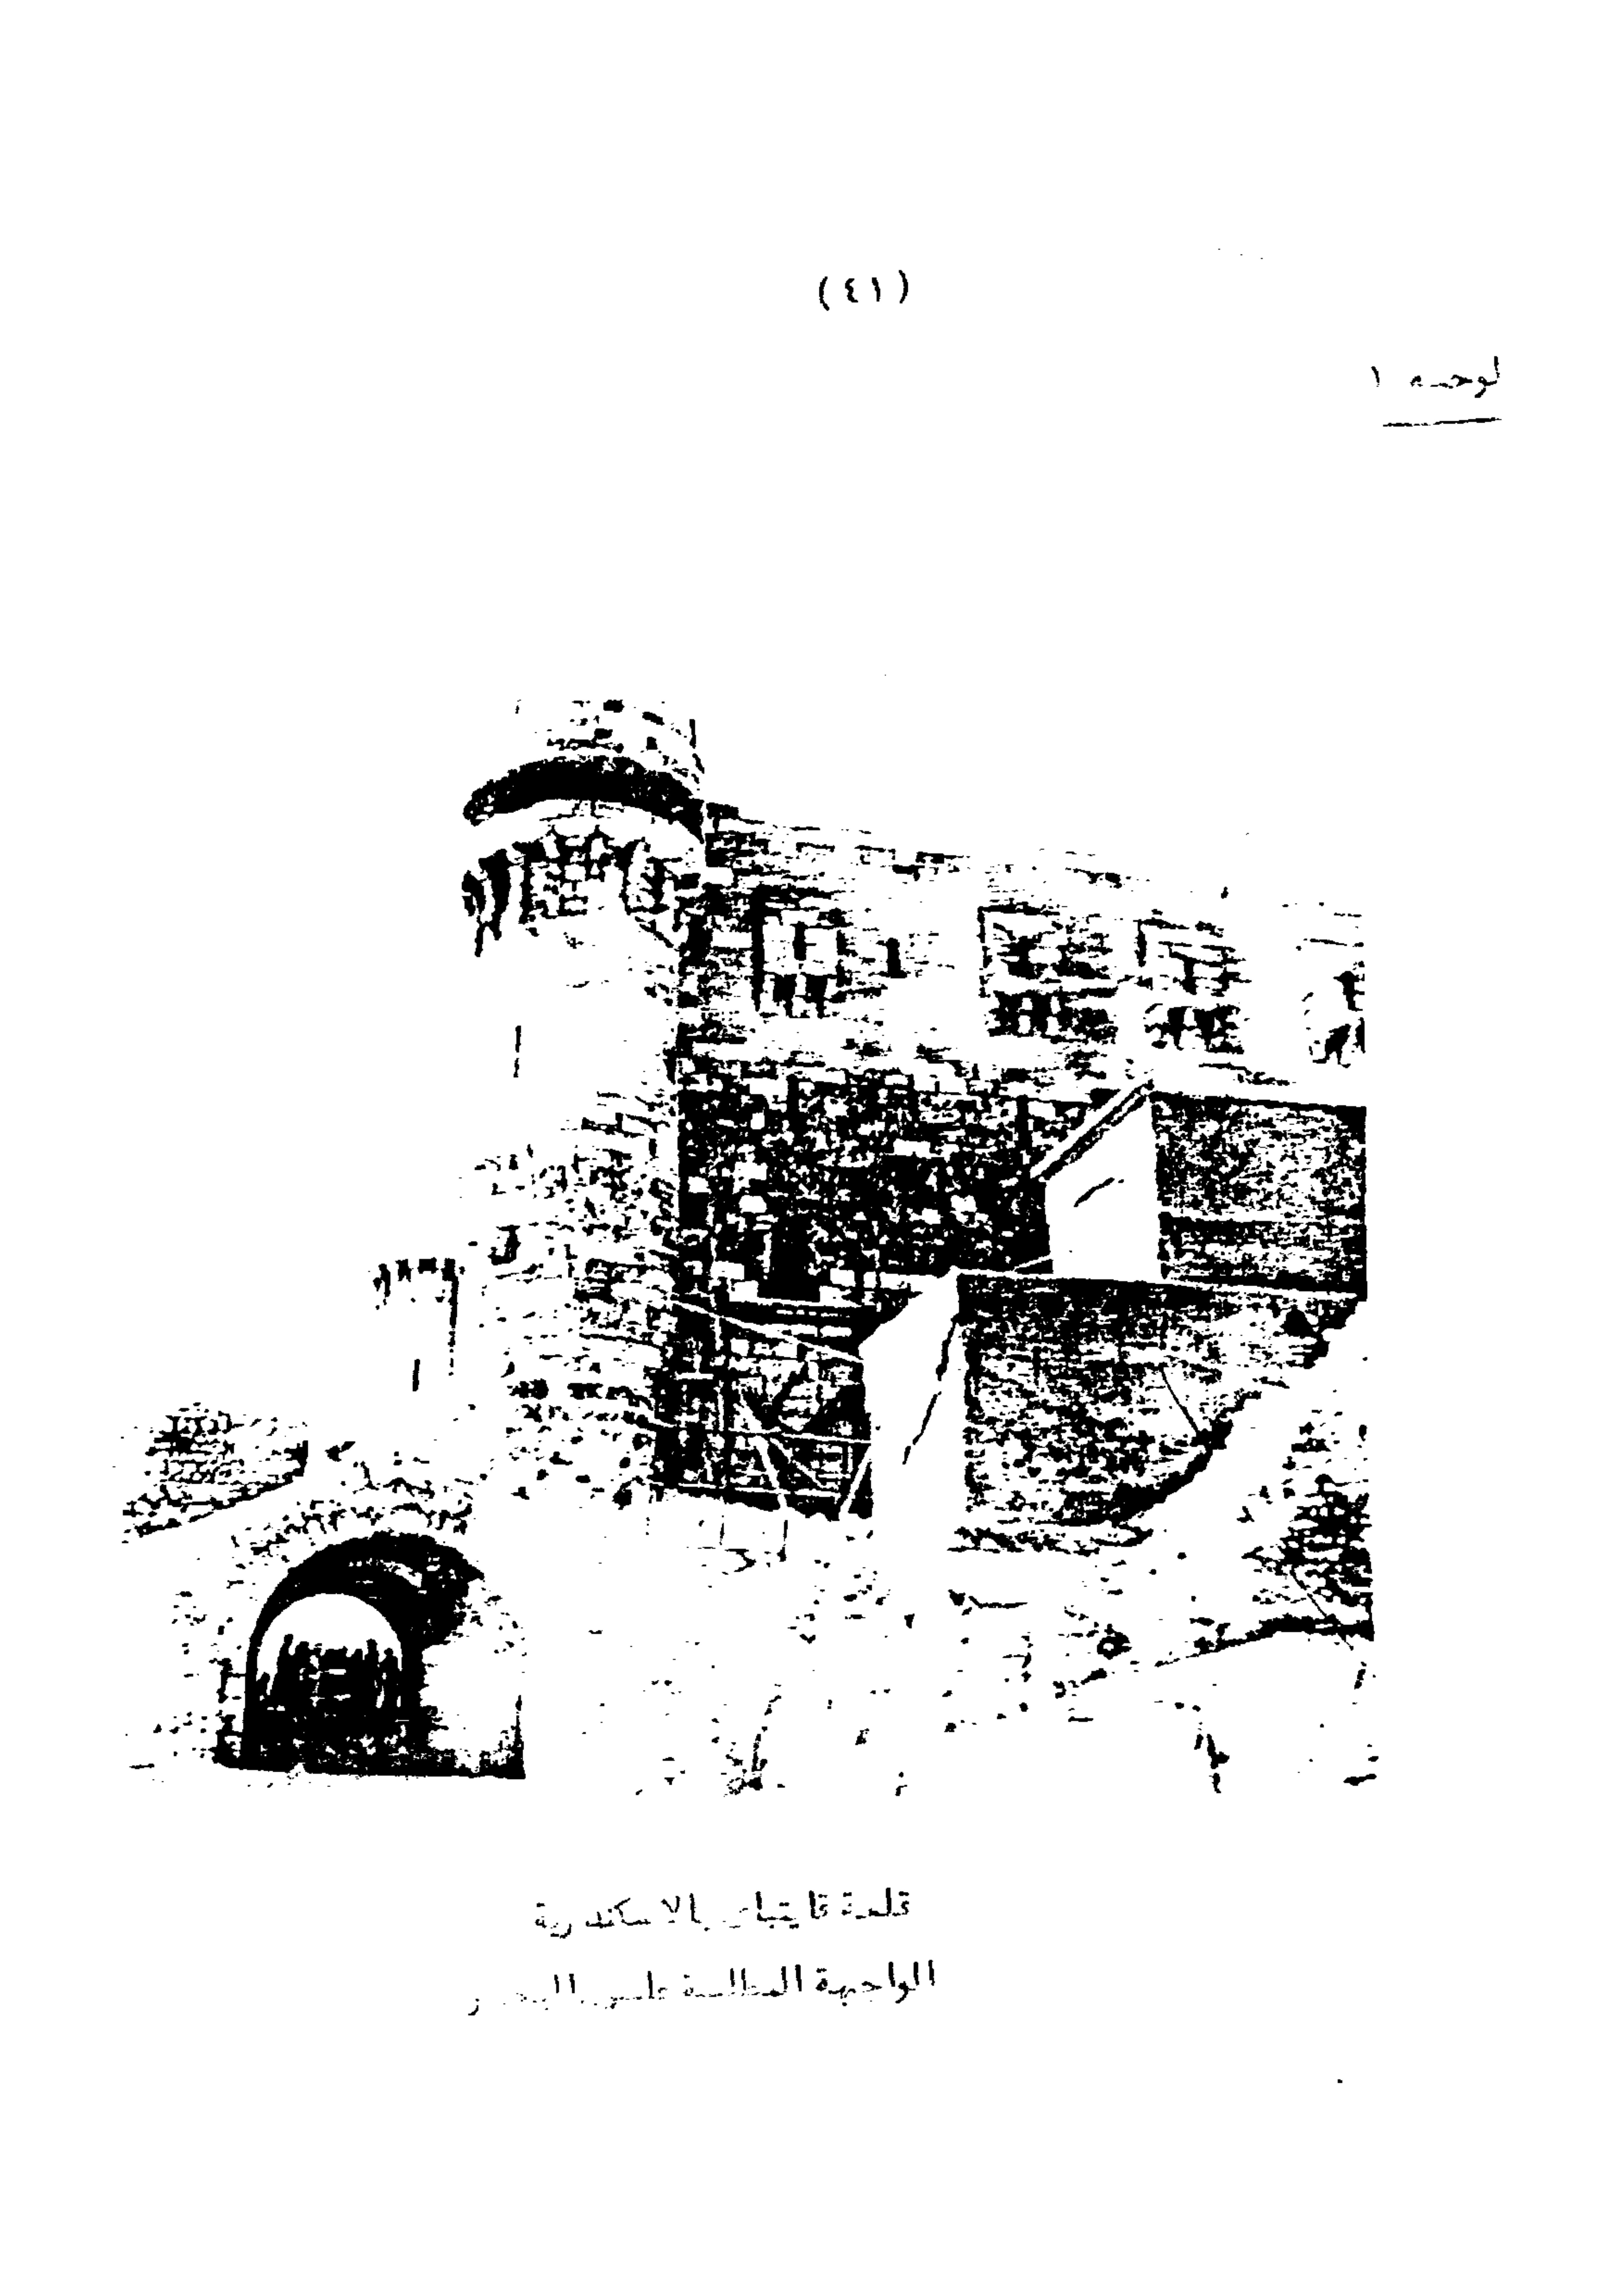 (٤١)
لوحه ١
قلعة قايتباى بالاسكندرية
الواجهة المطلة على البحر